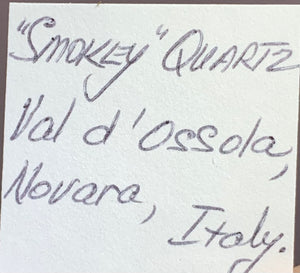 "Smokey" Quartz
Val d'Ossola,
Novara,
Italy.